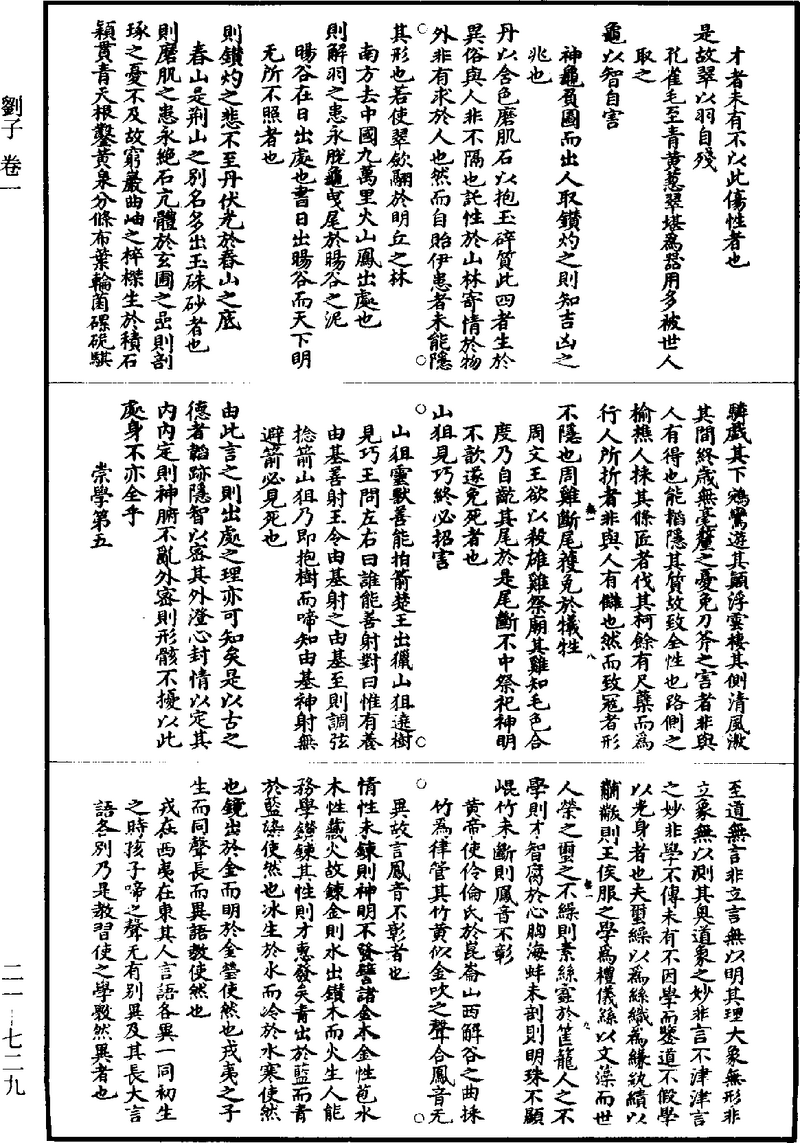 劉子 卷一
才者未有不以此傷性者也
是故翠以羽自殘
孔雀毛至青黄蔥翠堪爲器用多被世人
取之
龜以智自害
神龜負圖而出人取鑽灼之則知吉凶之
兆也
丹以含色磨肌石以抱玉碎質此四者生於
異俗與人非不隔也託性於山林寄情於物
外非有求於人也然而自貽伊患者未能隱
其形也若使翠斂翮於明丘之林
南方去中國九萬里火山鳳出處也
則解羽之患永脫龜曳尾於暘谷之泥
暘谷在日出處也書曰出暘谷而天下明
无所不照者也
則鑽灼之悲不至丹伏光於春山之底
春山是荆山之别名多出玉硃砂者也
則磨肌之患永絶石亢體於玄圃之嵒則剖
琢之憂不及故窮巖曲岫之梓櫟生於積石
穎貫青天根鑿黄泉分條布葉輪菌磥硊騏
驎戲其下鵷鸞遊其顛浮雲棲其側清風激
其間終歳無毫釐之憂免刀斧之害者非與
人有得也能韜隱其質故致全性也路側之
榆樵人採其條匠者伐其柯餘有尺蘖而爲
行人所折者非與人有讎也然而致寇者形
不隱也周雞斷尾獲免於犧牲
周文王欲以殺碓雞祭廟其雞知毛色合
度乃自齕其尾於是尾斷不中祭祀神明
不歆遂免死者也
山狙見巧終必招害
山狙靈獸善能拍箭楚王出獵山狙遶樹
見巧王問左右曰誰能善射對曰惟有養
由基善射王令由基射之由基至則調弦
捻箭山狙乃即抱樹而啼知由基神射無
避箭必見死也
由此言之則出處之理亦可知矣是以古之
德者韜跡隱智以密其外澄心封情以定其
内内定則神腑不亂外密則形骸不擾以此
處身不亦全乎
崇學第五
至道無言非立言無以明其理大象無形非
立象無以測其奥道象之妙非言不津津言
之妙非學不傳未有不因學而鑒道不假學
以光身者也夫蠒繰以爲絲織爲縑紈繢以
黼黻則王侯服之學爲禮儀絲以文藻而世
人榮之蠒之不繰則素絲蠹於筐籠人之不
學則才智腐於心胸海蚌未剖則明珠不顯
崐竹未斷則鳳音不彰
黄帝使伶倫氏於崑崙山西解谷之曲採
竹爲律管其竹黄似金吹之聲合鳳音无
異故言鳳音不彰者也
情性未鍊則神明不發譬諸金木金性苞水
木性藏火故鍊金則水出鑽木而火生人能
務學鑽鍊其性則才惠發矣青出於藍而青
於藍染使然也冰生於水而冷於水寒使然
也鏡出於金而明於金瑩使然也戎夷之子
生而同聲長而異語教使然也
戎在西夷在東其人言語各異一同初生
之時孩子啼之聲无有别異及其長大言
語各别乃是教習使之學斅然異者也
二一—七二九